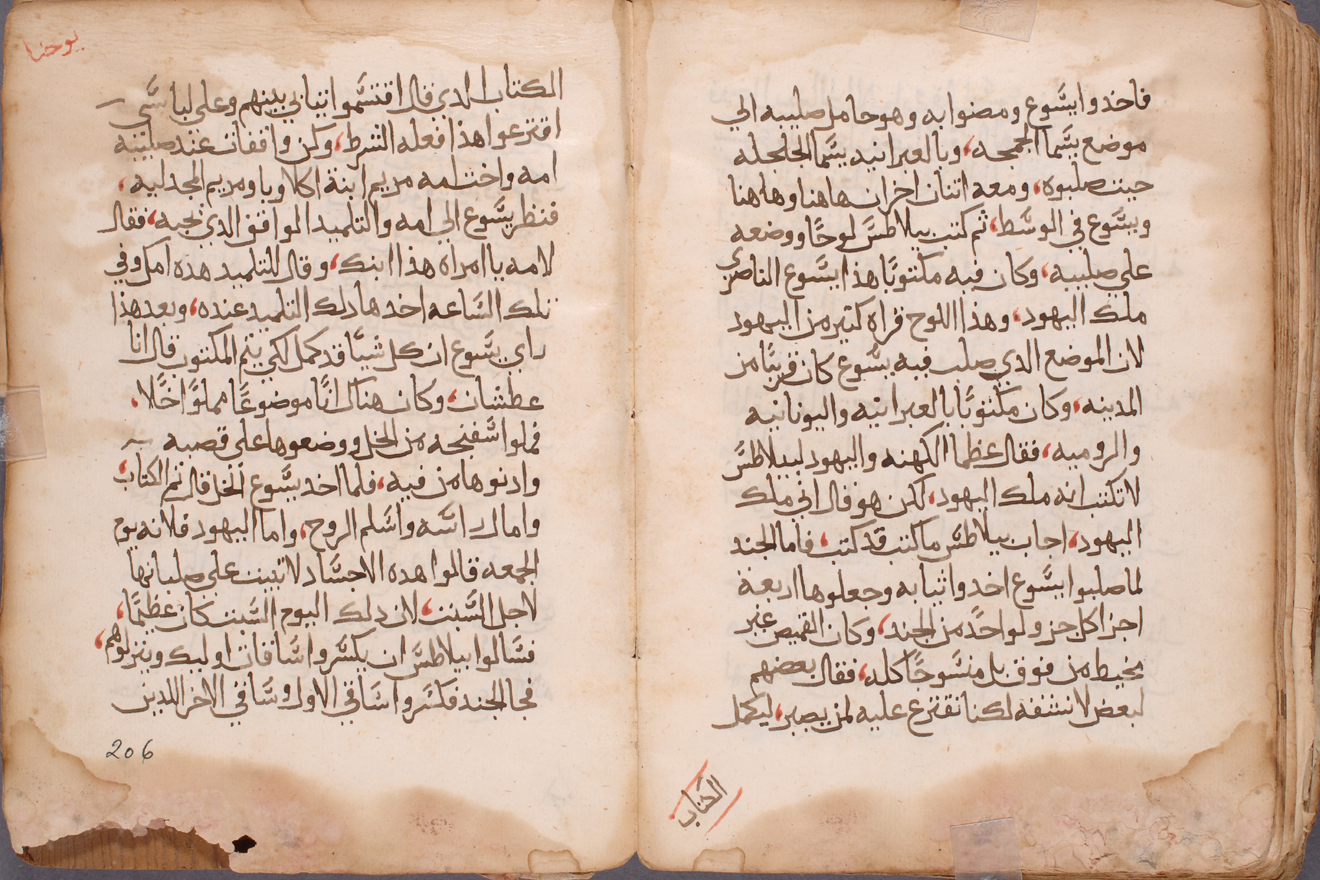 فاخدوا ايسوع ومضوا به وهو حامل صليبه الي
موضع يسما الجمجمه، وبالعبرانيه يسما الجلجله
حيث صلبوه، ومعه اتنان اخران هاهنا وهاهنا
ويسوع في الوسط، ثم كتب بيلاطس لوحا ووضعه
علي صليبه، وكان فيه مكتوبا هذا ايسوع الناصري
ملك اليهود، وهذا اللوح قراه كتير من اليهود
لان الموضع الدي صلب فيه يسوع كان قريبا من
المدينه، وكان مكتوبا بالعبرانيه واليونانيه
والروميه، فقال عظما الكهنه واليهود لبيلاطس
لا تكتب انه ملك اليهود، لكن هو قال اني ملك
اليهود، اجاب بيلاطس ما كتبت قد كتبت، فاما الجند
لما صلبوا يسوع اخدوا ثيابه وجعلوها اربعة
اجزا كل جزو لواحد من الجند، وكان القميص غير
مخيط من فوق بل منسوجا كله، فقال بعضهم
لبعض لا نشقه لكنا نقترع عليه لمن يصير، ليكمل
الكتاب
يوحنا
الكتاب الدي قال اقتسموا تيابي بينهم وعلي لباسي
اقترعوا هذا فعله الشرط، وكن واقفات عند صليبه
امه واخت امه مريم ابنة اكلاوبا ومريم المجدليه،
فنظر يسوع الي امه والتلميد الواقف الدي يحبه، فقال
لامه يا امراه هذا ابنك، وقال للتلميد هده امك وفي
تلك الساعه اخدها دلك التلميد عنده، وبعد هذا
راي يسوع ان كل شيا قد كمل لكي يتم المكتوب قال انا
عطشان، وكان هناك انا موضوعا مملوا خلا،
فملوا سفنجه من الخل ووضعوها علي قصبه
وادنوها من فيه، فلما اخد يسوع الخل قال تم الكتاب،
وامال راسه واسلم الروح، واما اليهود فلانه يوم
الجمعه قالوا هده الاجساد لا تبيت علي صلبانها
لاجل السبت، لان دلك اليوم السبت كان عظيما،
فسالوا بيلاطس ان يكسروا ساقات اوليك وينزلوهم،
فجا الجند فكسروا ساقي الاول وساقي الاخر اللدين
206